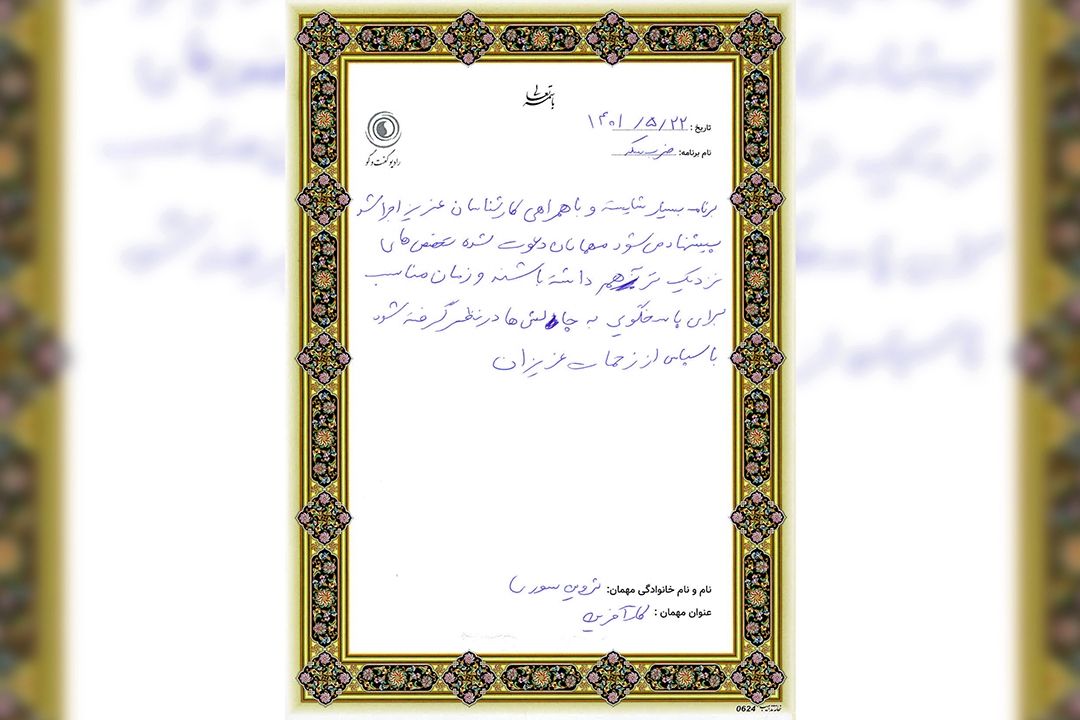 باسمه تعالی
تاریخ : ۱۴۰۱/۵/۲۲
رادیو گفت و گو
نام برنامه:
برنامه بسیار شایسته و با همراهی کارشناسان عزیز اجرا شد
پیشنهاد می‌شود مهمانان دعوت شده تخصص‌های
نزدیک تر بهم داشته باشند و زمان مناسب
برای پاسخگویی به چالش‌ها در نظر گرفته شود
با سپاس از زحمات عزیزان
نام و نام خانوادگی مهمان: سوری
عنوان مهمان : کارآفرین
0624